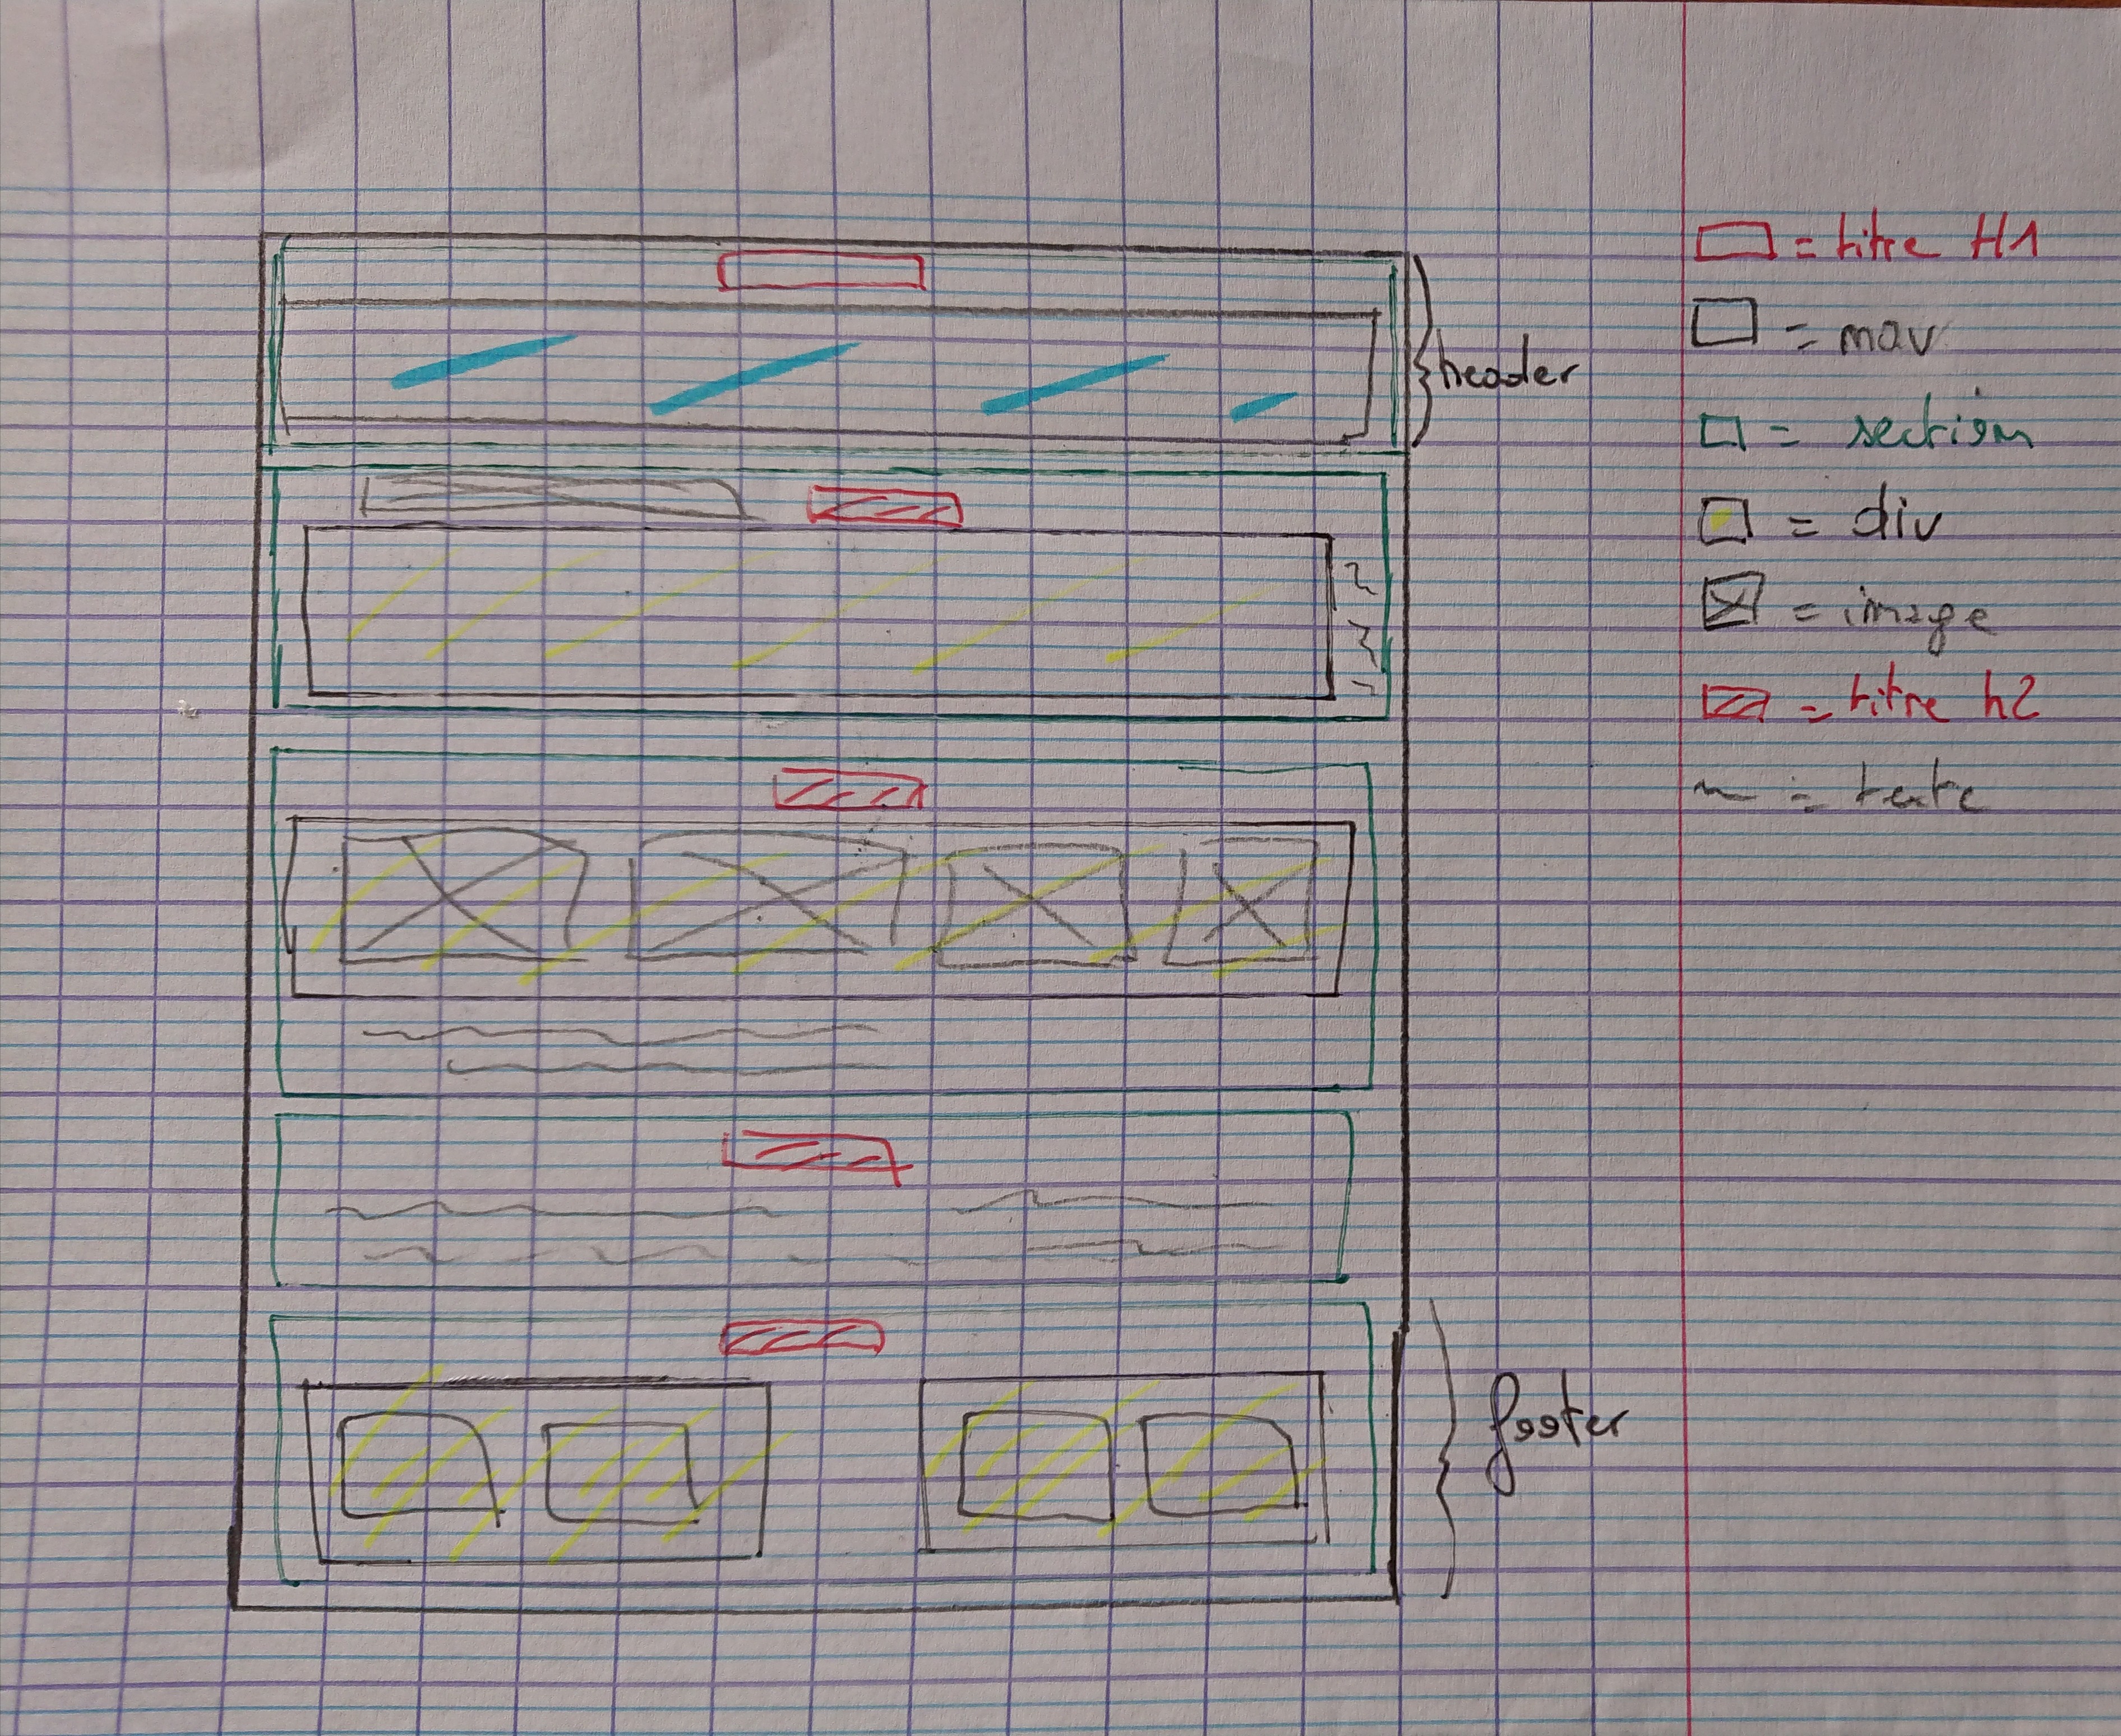 header
footer
= titre H1
= nav
= section
= div
= image
= titre h2
~ = texte